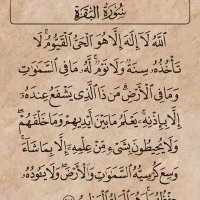 سُورَةُ البَقَرَة
ٱللَّهُ لَآ إِلَٰهَ إِلَّا هُوَ ٱلْحَىُّ ٱلْقَيُّومُ لَا
تَأْخُذُهُۥ سِنَةٌ وَلَا نَوْمٌ لَّهُۥ مَا فِى ٱلسَّمَٰوَٰتِ
وَمَا فِى ٱلْأَرْضِ مَن ذَا ٱلَّذِى يَشْفَعُ عِندَهُۥٓ
إِلَّا بِإِذْنِهِۦ يَعْلَمُ مَا بَيْنَ أَيْدِيهِمْ وَمَا خَلْفَهُمْ
وَلَا يُحِيطُونَ بِشَىْءٍ مِّنْ عِلْمِهِۦٓ إِلَّا بِمَا شَآءَ
وَسِعَ كُرْسِيُّهُ ٱلسَّمَٰوَٰتِ وَٱلْأَرْضَ وَلَا يَـُٔودُهُۥ